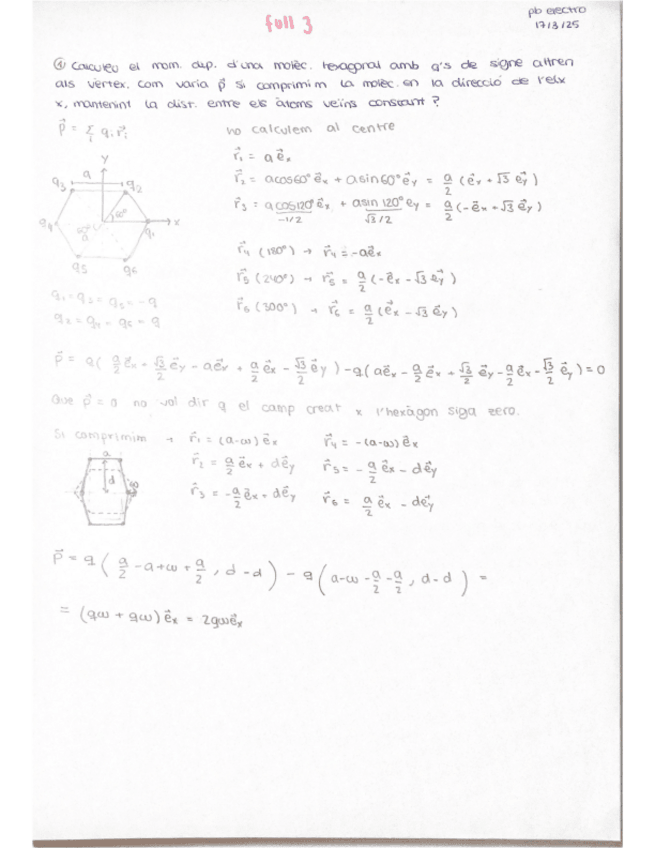 full 3
pb electro
17/3/25
① Calculeu el mom. dip. d'una molèc. hexagonal amb q's de signe altern
als vèrtex. Com varia p⃗ si comprimim la molèc. en la direcció de l'eix
x, mantenint la dist. entre els àtoms veïns constant?
p⃗ = Σᵢ qᵢ r⃗ᵢ no calculem al centre
r⃗₁ = a e⃗ₓ
r⃗₂ = a cos60° e⃗ₓ + a sin60° e⃗ᵧ = a/2 (e⃗ₓ + √3 e⃗ᵧ)
r⃗₃ = a cos120° e⃗ₓ + a sin120° eᵧ = a/2 (-e⃗ₓ + √3 e⃗ᵧ)
-1/2 √3/2
y
a
q₃ q₂
60°
q₄ q₁ x
a
q₅ q₆
r⃗₄ (180°) → r⃗₄ = -a e⃗ₓ
r⃗₅ (240°) → r⃗₅ = a/2 (-e⃗ₓ - √3 e⃗ᵧ)
r⃗₆ (300°) → r⃗₆ = a/2 (e⃗ₓ - √3 e⃗ᵧ)
q₁ = q₃ = q₅ = -q
q₂ = q₄ = q₆ = q
p⃗ = q( a/2 e⃗ₓ + √3/2 e⃗ᵧ - a e⃗ₓ + a/2 e⃗ₓ - √3/2 e⃗ᵧ ) - q( a e⃗ₓ - a/2 e⃗ₓ + √3/2 e⃗ᵧ - a/2 e⃗ₓ - √3/2 e⃗ᵧ ) = 0
Que p⃗ = 0 no vol dir q el camp creat x l'hexàgon siga zero.
Si comprimim → r⃗₁ = (a-ω) e⃗ₓ r⃗₄ = -(a-ω) e⃗ₓ
r⃗₂ = a/2 e⃗ₓ + d e⃗ᵧ r⃗₅ = - a/2 e⃗ₓ - d e⃗ᵧ
r⃗₃ = - a/2 e⃗ₓ + d e⃗ᵧ r⃗₆ = a/2 e⃗ₓ - d e⃗ᵧ
a
d
p⃗ = q ( a/2 - a + ω + a/2 , d - d ) - q ( a - ω - a/2 - a/2 , d - d ) =
= (qω + qω) e⃗ₓ = 2qω e⃗ₓ